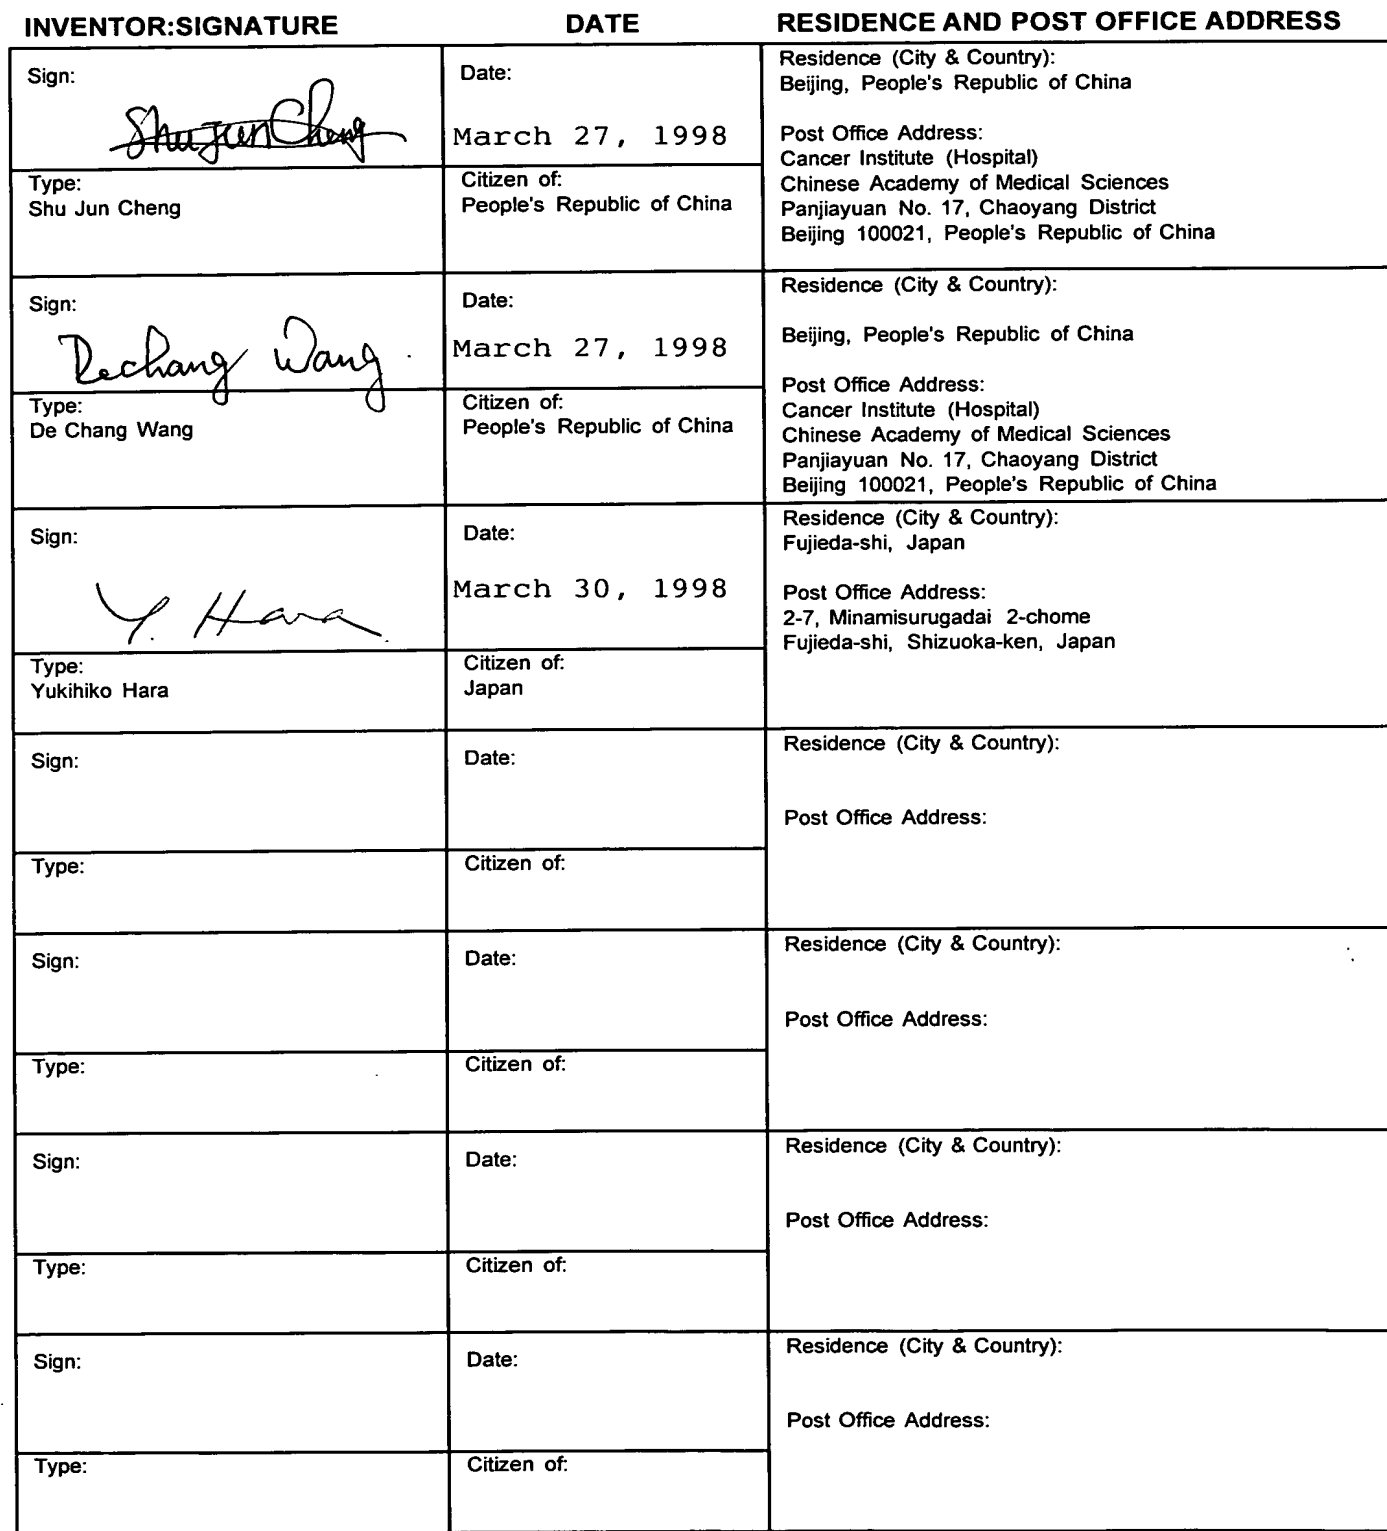 INVENTOR:SIGNATURE DATE RESIDENCE AND POST OFFICE ADDRESS
Sign:
Shu Jun Cheng
Date:
March 27, 1998
Residence (City & Country):
Beijing, People's Republic of China
Post Office Address:
Cancer Institute (Hospital)
Chinese Academy of Medical Sciences
Panjiayuan No. 17, Chaoyang District
Beijing 100021, People's Republic of China
Type:
Shu Jun Cheng
Citizen of:
People's Republic of China
Sign:
Dechang Wang
Date:
March 27, 1998
Residence (City & Country):
Beijing, People's Republic of China
Post Office Address:
Cancer Institute (Hospital)
Chinese Academy of Medical Sciences
Panjiayuan No. 17, Chaoyang District
Beijing 100021, People's Republic of China
Type:
De Chang Wang
Citizen of:
People's Republic of China
Sign:
Y. Hara
Date:
March 30, 1998
Residence (City & Country):
Fujieda-shi, Japan
Post Office Address:
2-7, Minamisurugadai 2-chome
Fujieda-shi, Shizuoka-ken, Japan
Type:
Yukihiko Hara
Citizen of:
Japan
Sign:
Date:
Residence (City & Country):
Post Office Address:
Type:
Citizen of:
Sign:
Date:
Residence (City & Country):
Post Office Address:
Type:
Citizen of:
Sign:
Date:
Residence (City & Country):
Post Office Address:
Type:
Citizen of:
Sign:
Date:
Residence (City & Country):
Post Office Address:
Type:
Citizen of: